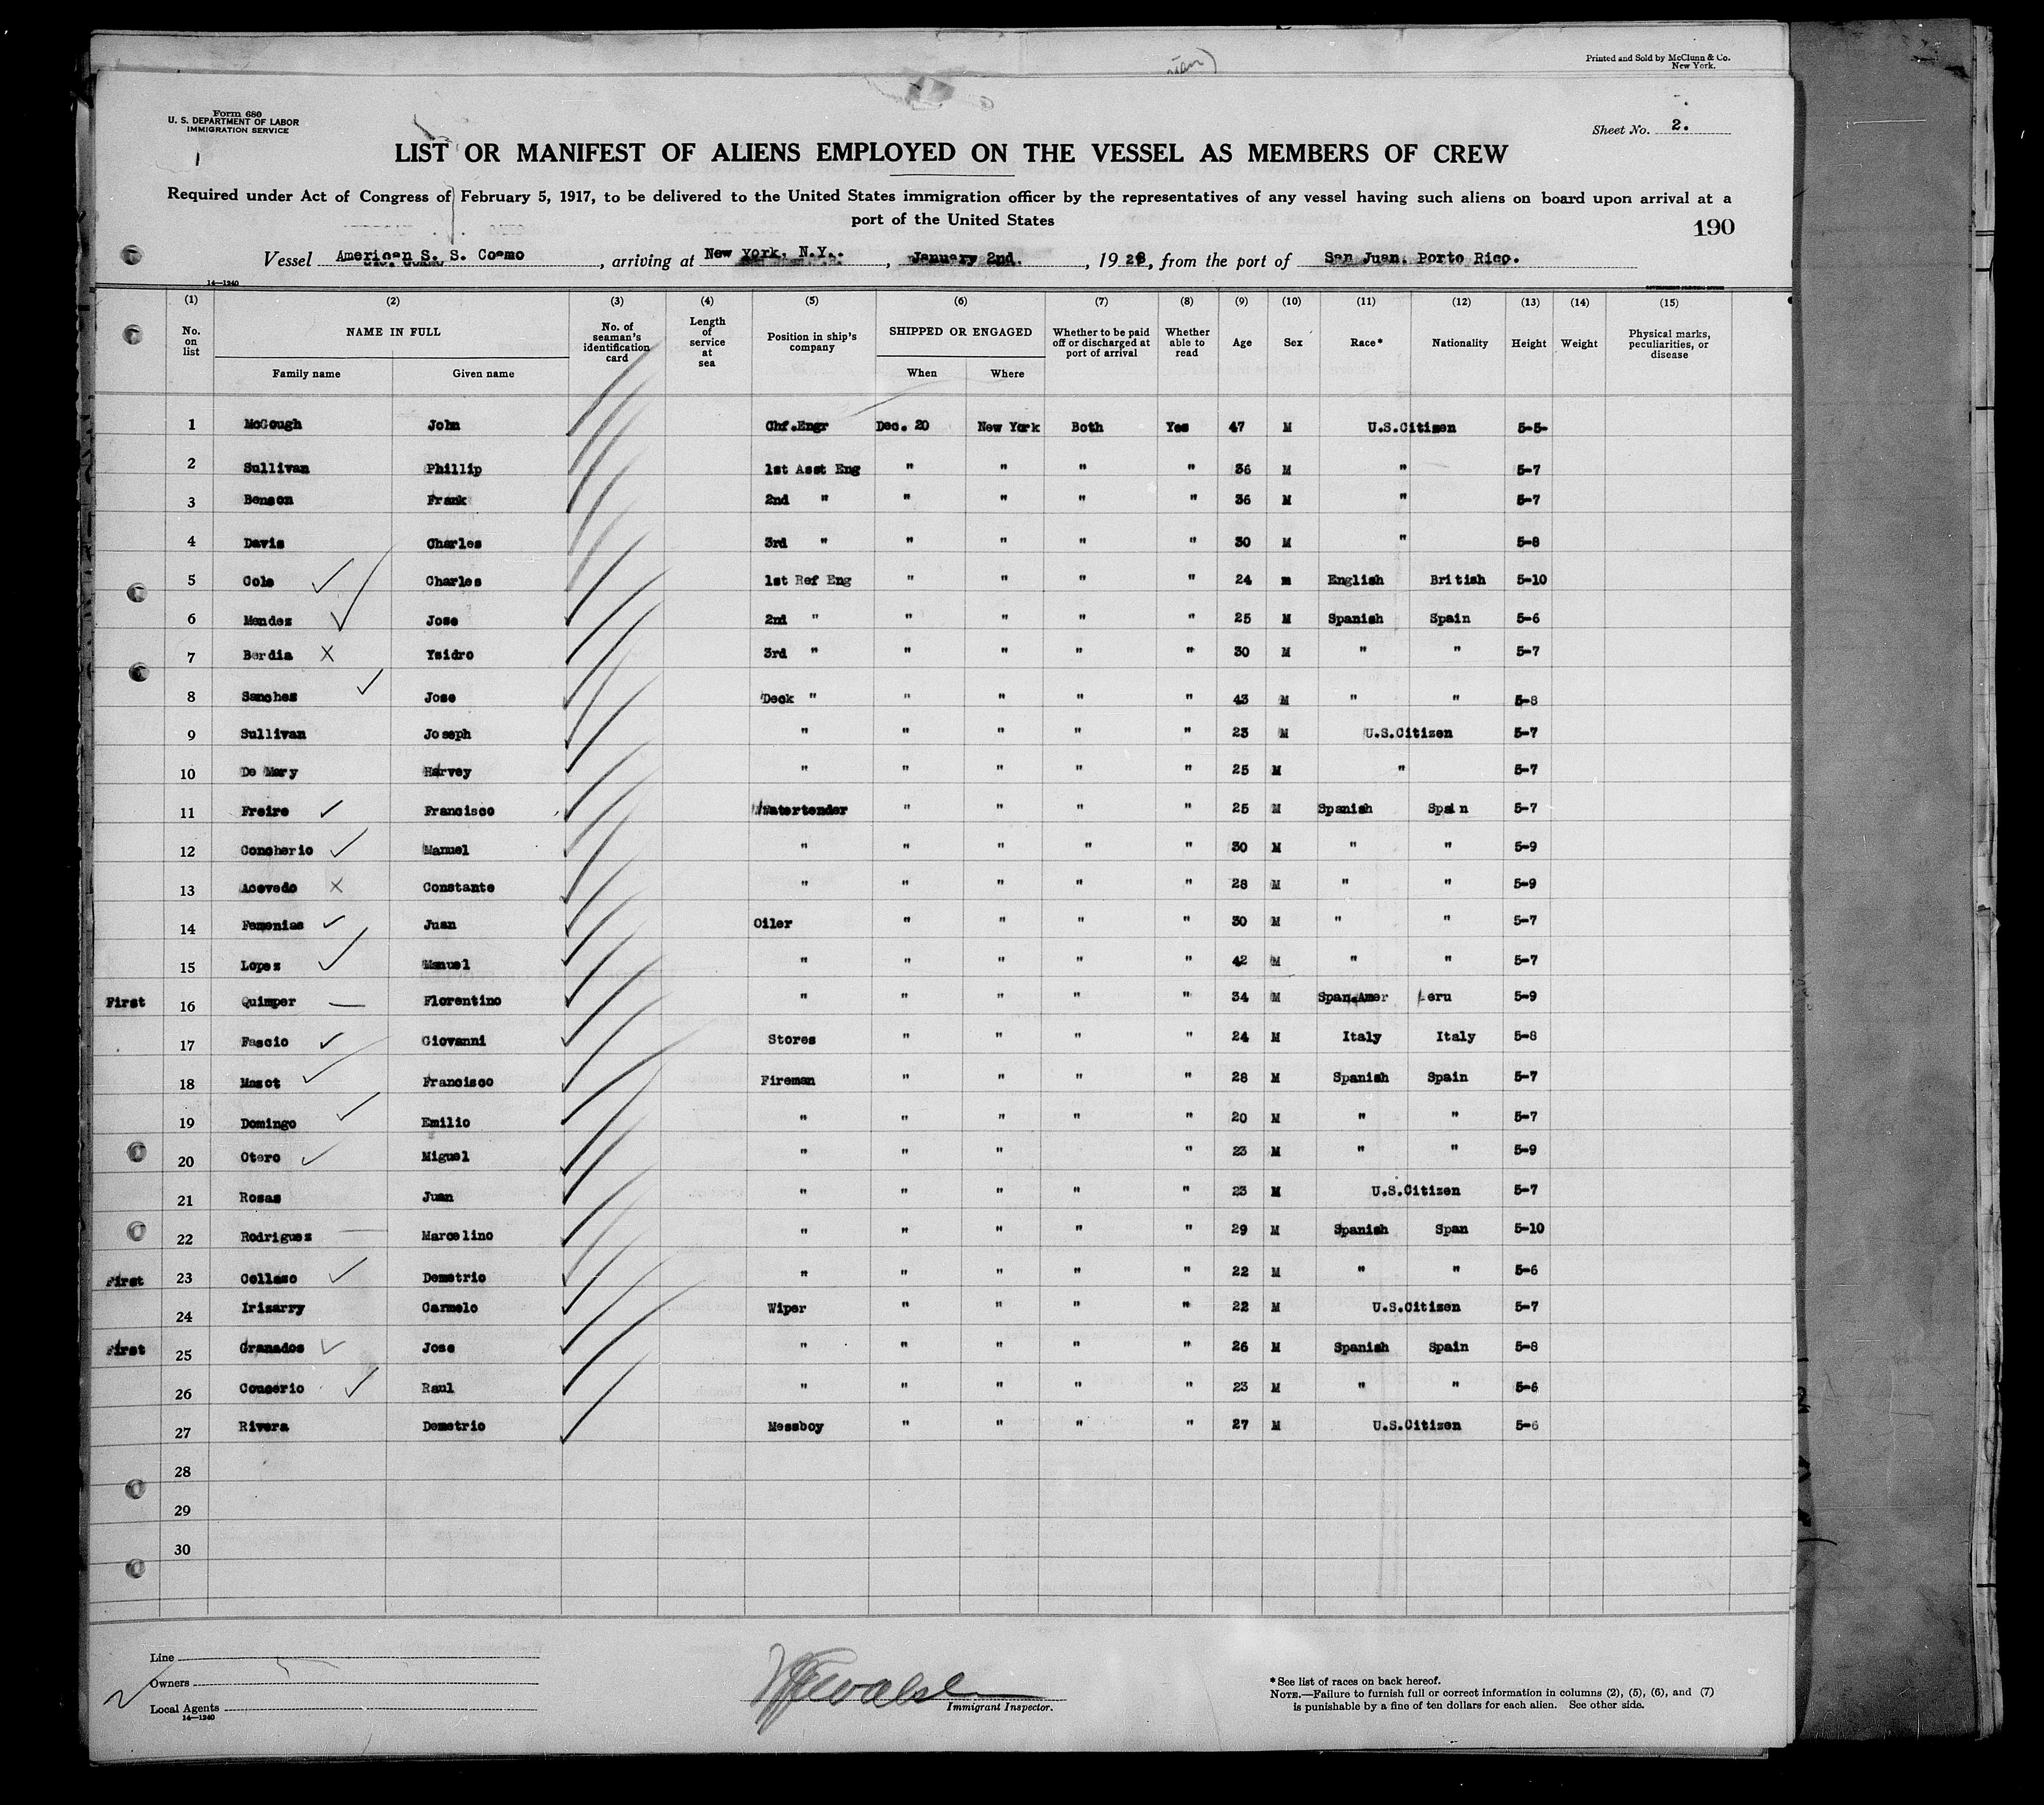 Printed and Sold by McClunn & Co.
New York.
Form 680
U. S. DEPARTMENT OF LABOR
IMMIGRATION SERVICE
1
Sheet No. 2.
LIST OR MANIFEST OF ALIENS EMPLOYED ON THE VESSEL AS MEMBERS OF CREW
Required under Act of Congress of February 5, 1917, to be delivered to the United States immigration officer by the representatives of any vessel having such aliens on board upon arrival at a
port of the United States
190
Vessel American S. S. Coamo, arriving at New York, N.Y., January 2nd., 1928, from the port of San Juan, Porto Rico.
14—1240
(1) (2) (3) (4) (5) (6) (7) (8) (9) (10) (11) (12) (13) (14) (15)
No. on list NAME IN FULL Family name Given name No. of seaman's identification card Length of service at sea Position in ship's company SHIPPED OR ENGAGED When Where Whether to be paid off or discharged at port of arrival Whether able to read Age Sex Race* Nationality Height Weight Physical marks, peculiarities, or disease
1 McGough John Chf.Engr Dec. 20 New York Both Yes 47 M U.S.Citizen 5-5-
2 Sullivan Phillip 1st Asst Eng " " " " 36 M " 5-7
3 Benson Frank 2nd " " " " " 36 M " 5-7
4 Davis Charles 3rd " " " " " 30 M " 5-8
5 Cole Charles 1st Ref Eng " " " " 24 m English British 5-10
6 Mendez Jose 2nd " " " " " 25 M Spanish Spain 5-6
7 Berdia X Ysidro 3rd " " " " " 30 M " " 5-7
8 Sanchez Jose Deck " " " " " 43 M " " 5-8
9 Sullivan Joseph " " " " " 23 M U.S.Citizen 5-7
10 De Mary Harvey " " " " " 25 M " 5-7
11 Freire Francisco Watertender " " " " 25 M Spanish Spain 5-7
12 Concherio Manuel " " " " " 30 M " " 5-9
13 Acevedo X Constante " " " " " 28 M " " 5-9
14 Femenias Juan Oiler " " " " 30 M " " 5-7
15 Lopez Manuel " " " " " 42 M " " 5-7
First 16 Quimper Florentino " " " " " 34 M Span.Amer eru 5-9
17 Fascio Giovanni Stores " " " " 24 M Italy Italy 5-8
18 Masot Francisco Fireman " " " " 28 M Spanish Spain 5-7
19 Domingo Emilio " " " " " 20 M " " 5-7
20 Otero Miguel " " " " 23 M " " 5-9
21 Rosas Juan " " " " " 23 M U.S.Citizen 5-7
22 Rodriguez Marcelino " " " " " 29 M Spanish Span 5-10
First 23 Collazo Demetrio " " " " " 22 M " " 5-6
24 Irizarry Carmelo Wiper " " " " 22 M U.S.Citizen 5-7
First 25 Granados Jose " " " " " 26 M Spanish Spain 5-8
26 Couserio Raul " " " " " 23 M " " 5-6
27 Rivera Demetrio Messboy " " " " 27 M U.S.Citizen 5-6
28
29
30
Line
Owners
Local Agents
14—1240
Immigrant Inspector.
*See list of races on back hereof.
NOTE.—Failure to furnish full or correct information in columns (2), (5), (6), and (7)
is punishable by a fine of ten dollars for each alien. See other side.